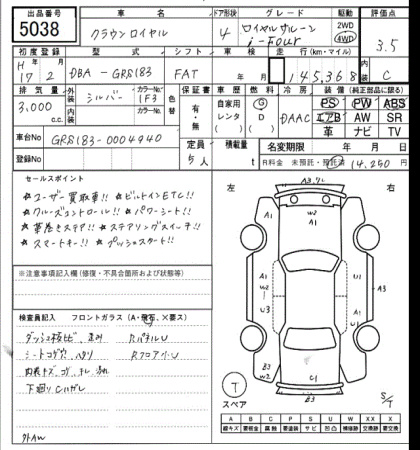 出品番号 車名 ドア形状 グレード 駆動 評価点
5038 クラウンロイヤル 4 ロイヤルサルーン i-Four 2WD 4WD 3.5
初度登録 型式 シフト 車検 走行(km・マイル) 内装
H17 2 DBA-GRS183 FAT 年 月 145,368 C
排気量 外装 カラーNo. 色替 保証書 車歴 燃料 冷房 装備(純正部品に限る)
3,000 cc シルバー 1F3 有・無 自家用 レンタ G D DAAC PS PW ABS
エアB AW SR
革 ナビ TV
車台No GRS183-0004940 定員 積載量 名変期限 年 月 日
登録No 5人 t R料金 未預託・預託済 14,250円
セールスポイント
★ユーザー買取車!! ★ビルトインETC!!
★クルーズコントロール!! ★パワーシート!!
★革巻きステア!! ★ステアリングスイッチ!!
★スマートキー!! ★プッシュスタート!!
※注意事項記入欄(修復・不具合箇所および交換状況等)
検査員記入 フロントガラス(A・飛石、×要ス)
シートコゲ穴、ヘタリ RフロアインU
下廻りCハガレ
外AW
左 右
A3
W2
A1 A1
A1 A1
W2 A1 A3
U3 U1
B3 W2 C1 A1
B3
T スペア S/T
A B C P S U W X XX
線キズ 要板金 腐触 要塗装 サビ 凹凸 補修跡 要交換 交換跡